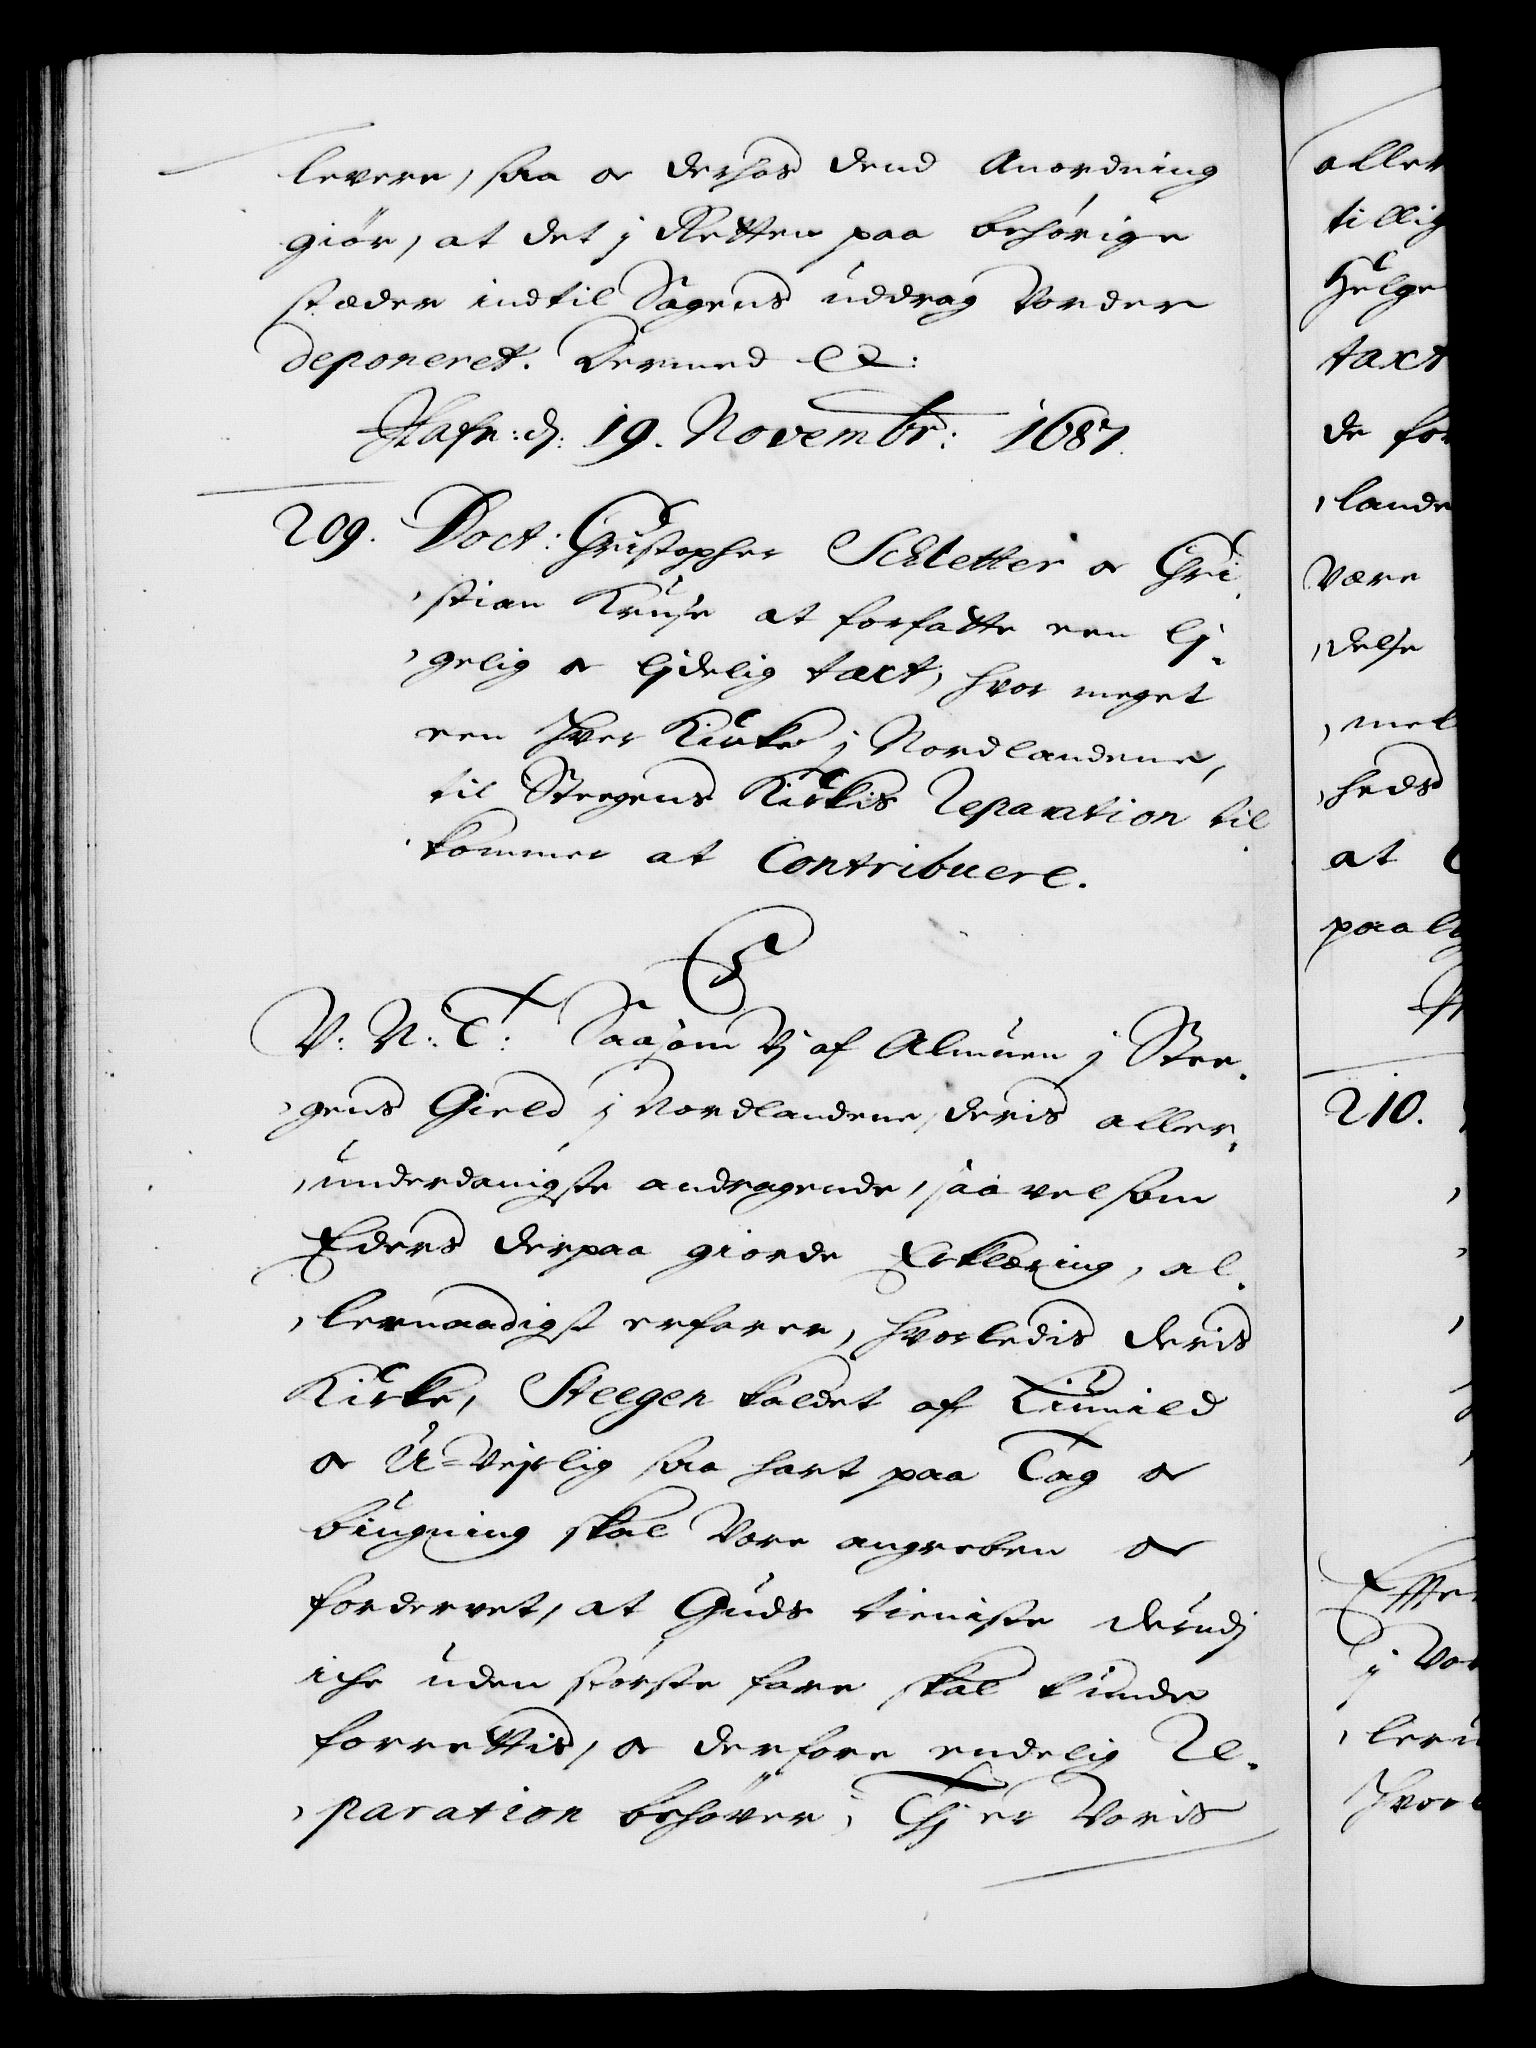 levere, saa oc derhos dend Anordning
giör, at det j Retten paa behörige
stæder indtil Sagens uddrag vorder
deponeret. Dermed etc:
Hafn: d: 19. Novembr: 1687.
209. Doct: Christopher Schletter oc Chri-
stian Kruse at forfatte een lj-
gelig oc ljdelig taxt, hvor meget
een hver Kircke j Nordlandene,
til Steegens Kirkis Reparation til
kommer at Contribuere.
C5
V: N: T: Saasom Vj af Almuen j Stee-
gens Gield j Nordlandene, deris aller-
underdanigste andragende, saa vel som
Eders derpaa giorde Erklæring, al-
lernaadigst erfarer, hvorledis deris
Kirke, Steegen kaldet af Tiunild
oc U-Vejrlig saa hart paa Tag oc
biugning skal Være angreben oc
fordervet, at Guds tieniste derudj
iche uden störste fare skal kunde
forrettis, oc derfore endelig Re-
paration behöver; Thj er Voris
aller
tillig
Helge
taxt
de for
lande
Være
delse
med
heds
at
paaly
210.
Effte
j Vor
leru
hvorl